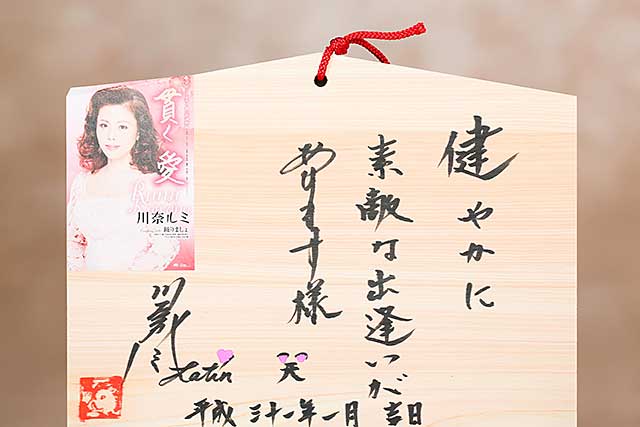 健やかに
素敵な出逢いが
あります様
天
平成三十一年一月吉日
川奈ルミ
Latin
貫く愛
Rumi
川奈ルミ